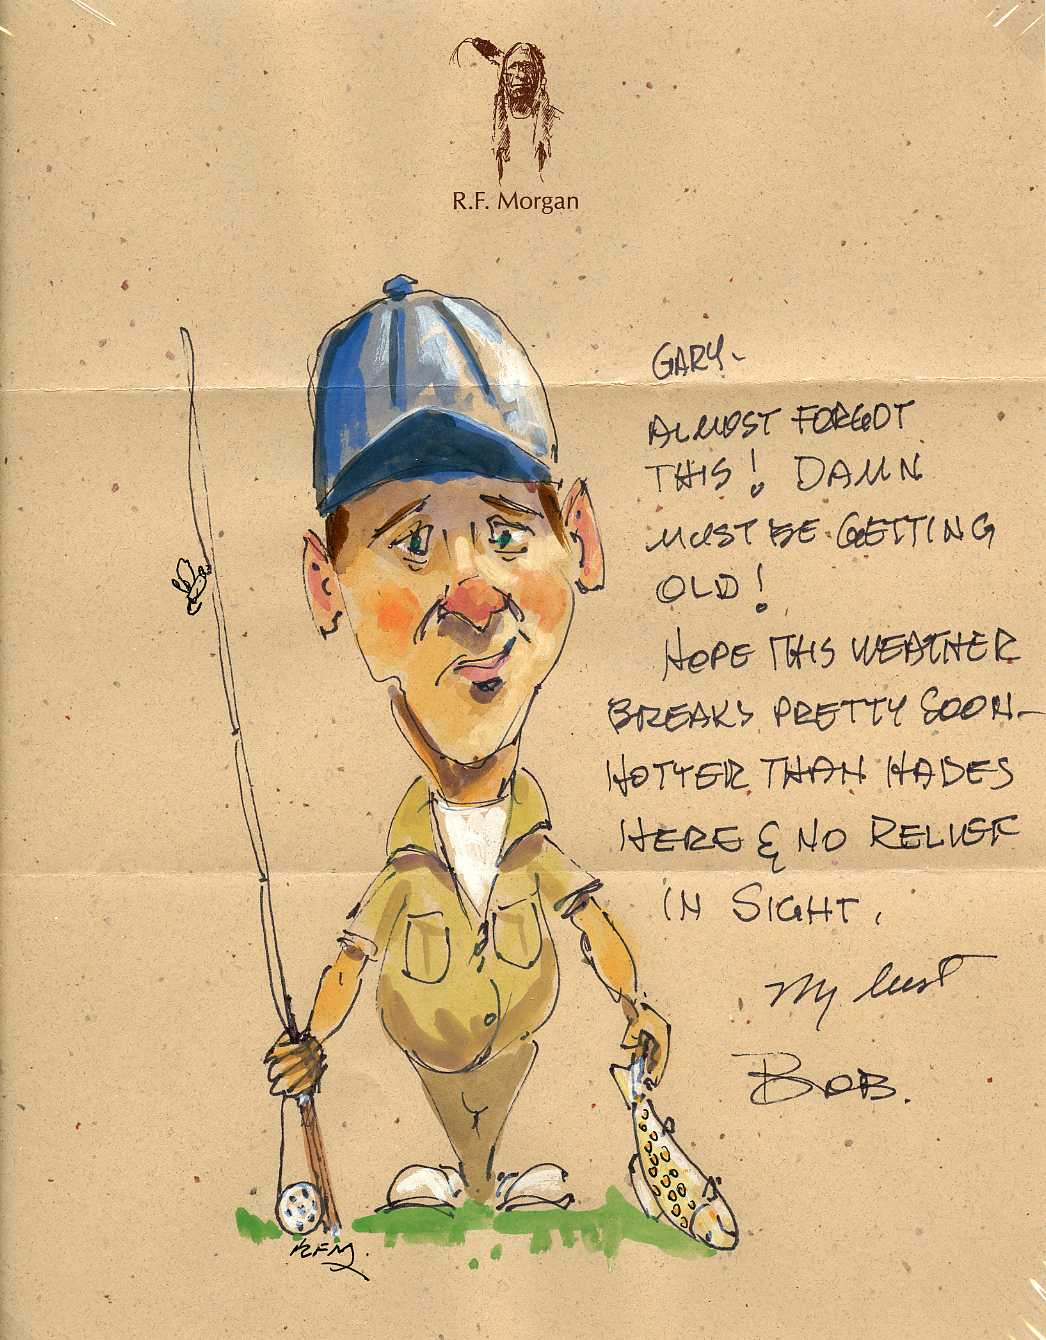 R.F. Morgan
GARY-
ALMOST FORGOT
THIS! DAMN
MUST BE GETTING
OLD!
HOPE THIS WEATHER
BREAKS PRETTY SOON-
HOTTER THAN HADES
HERE & NO RELIEF
IN SIGHT.
My best
BOB.
RFM